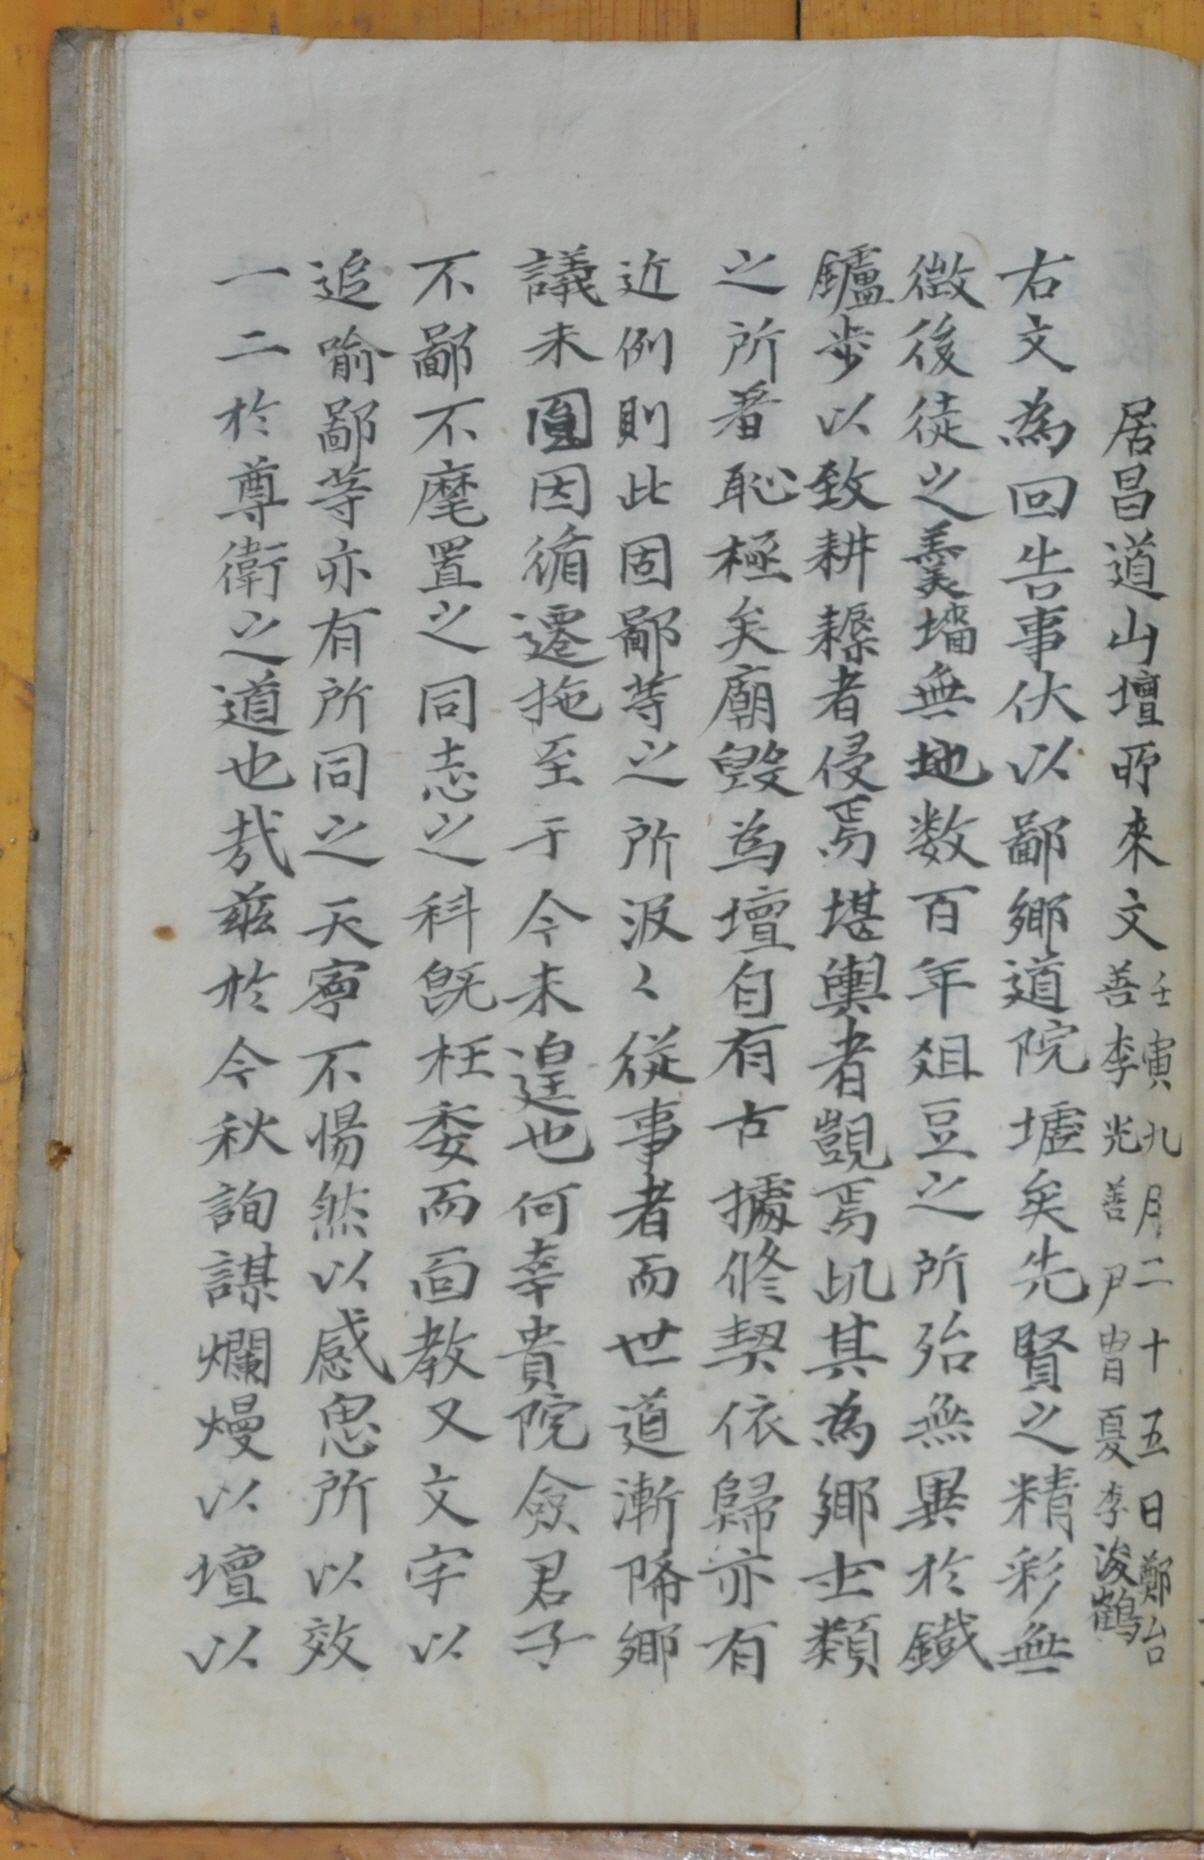 居昌道山壇所來文 壬寅九月二十五日鄭台
善李光善尹冑夏李浚鶴
右文為回告事伏以鄙鄉道院墟矣先賢之精彩無
徵後徒之羹墻無地数百年俎豆之所殆無異於鐵
鑪步以致耕耨者侵焉堪輿者覬焉此其為鄉士類
之所著恥極矣廟毀為壇自有古據修契依歸亦有
近例則此固鄙等之所汲〻從事者而世道漸降鄉
議未圓因循遷拖至于今未遑也何幸貴院僉君子
不鄙不麾置之同志之科旣枉委而面教又文字以
追喻鄙等亦有所同之天寧不惕然以感思所以效
一二於尊衛之道也哉玆於今秋詢謀爛熳以壇以